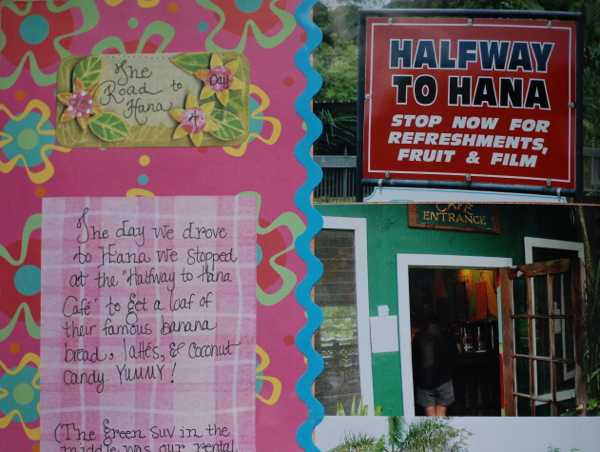 The
Road to
Hana
Day
4
The day we drove
to Hana we stopped
at the "Halfway to Hana
Café" to get a loaf of
their famous banana
bread, lattés, & coconut
candy. YUMMY!
(The green suv in the
middle was our rental
HALFWAY
TO HANA
STOP NOW FOR
REFRESHMENTS,
FRUIT & FILM
CAFE
ENTRANCE